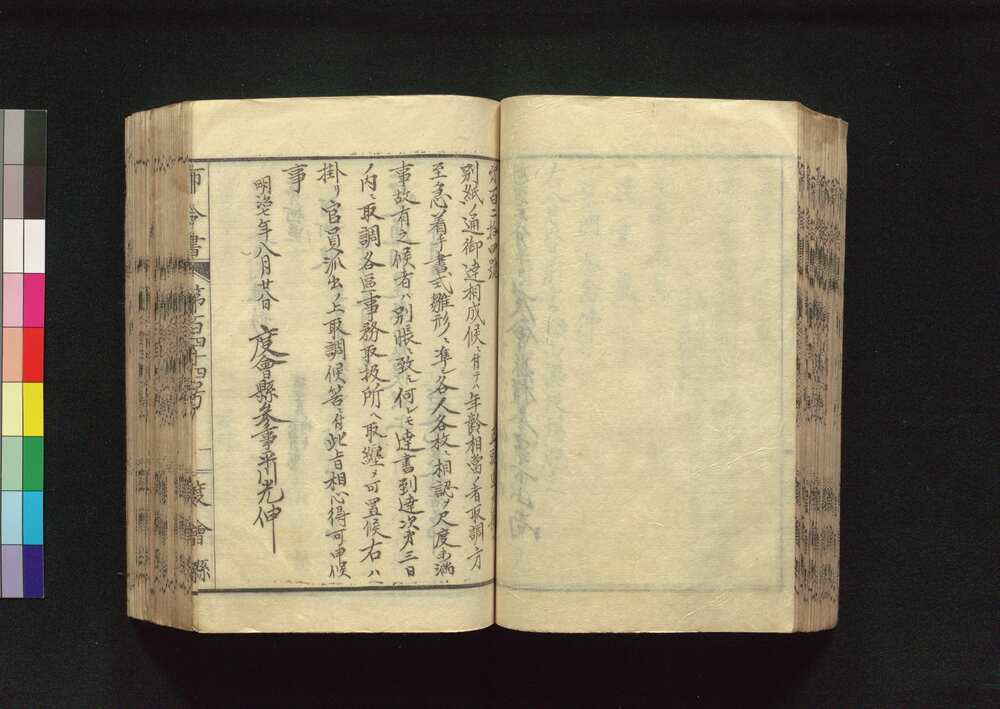 第百二拾四號
別紙ノ通御達相成候ニ付テハ年齢相當ノ者取調方
至急着手書式雛形ニ準シ各人各枚ニ相認メ尺度未満
事故有之候者ハ別帳ニ致シ何レモ達書到達次第三日
ノ内ニ取調各區事務取扱所ヘ取纒メ可置候右ハ
掛リ官員派出ノ上取調候筈ニ付此旨相心得可申候
事
明治七年八月廿八日 度會縣參事平川光伸
布令書 第百四十四号 一 度會縣